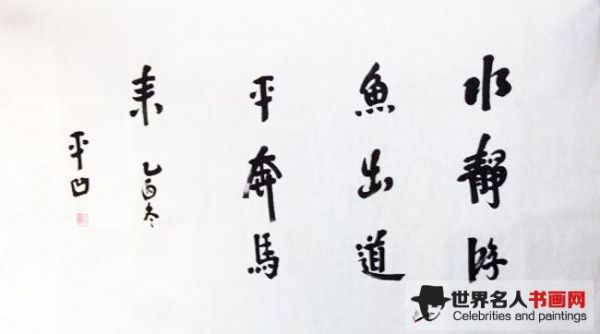 水靜游
魚出道
平奔馬
来 乙酉冬
平凹
世界名人书画网
Celebrities and paintings